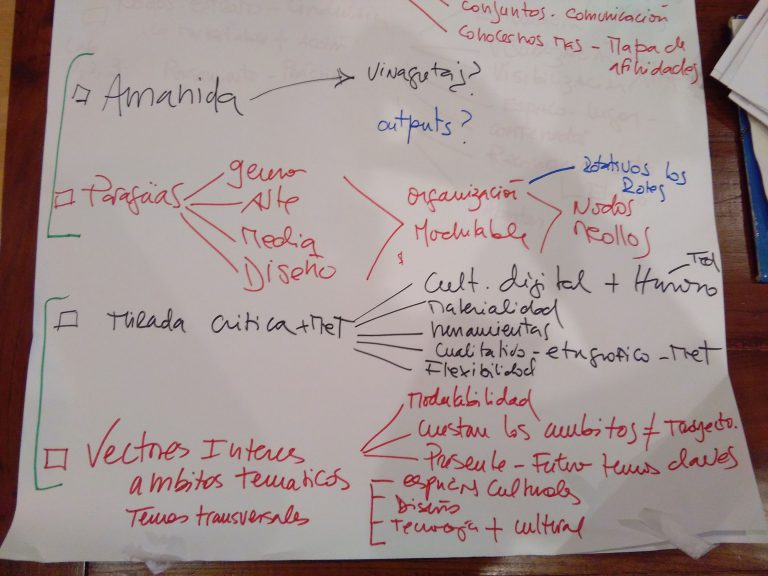 conjuntos. comunicación
conocernos mas - Mapa de
afinidades
Amanida
vinagretas?
outputs?
Paraguas
genero
Arte
Media
Diseño
organización
Modulable
Rotativos los
Roles
Nodos
Mirada critica + Met
Cult. digital + Humano
materialidad
herramientas
cualitativo - etnografico - Met
Flexibilidad
Vectores Interes
ambitos tematicos
Temas transversales
Modulabilidad
los ambitos ≠ Trayecto.
Presente - Futuro temas claves
espacios culturales
Diseño
Tecnologia + cultural